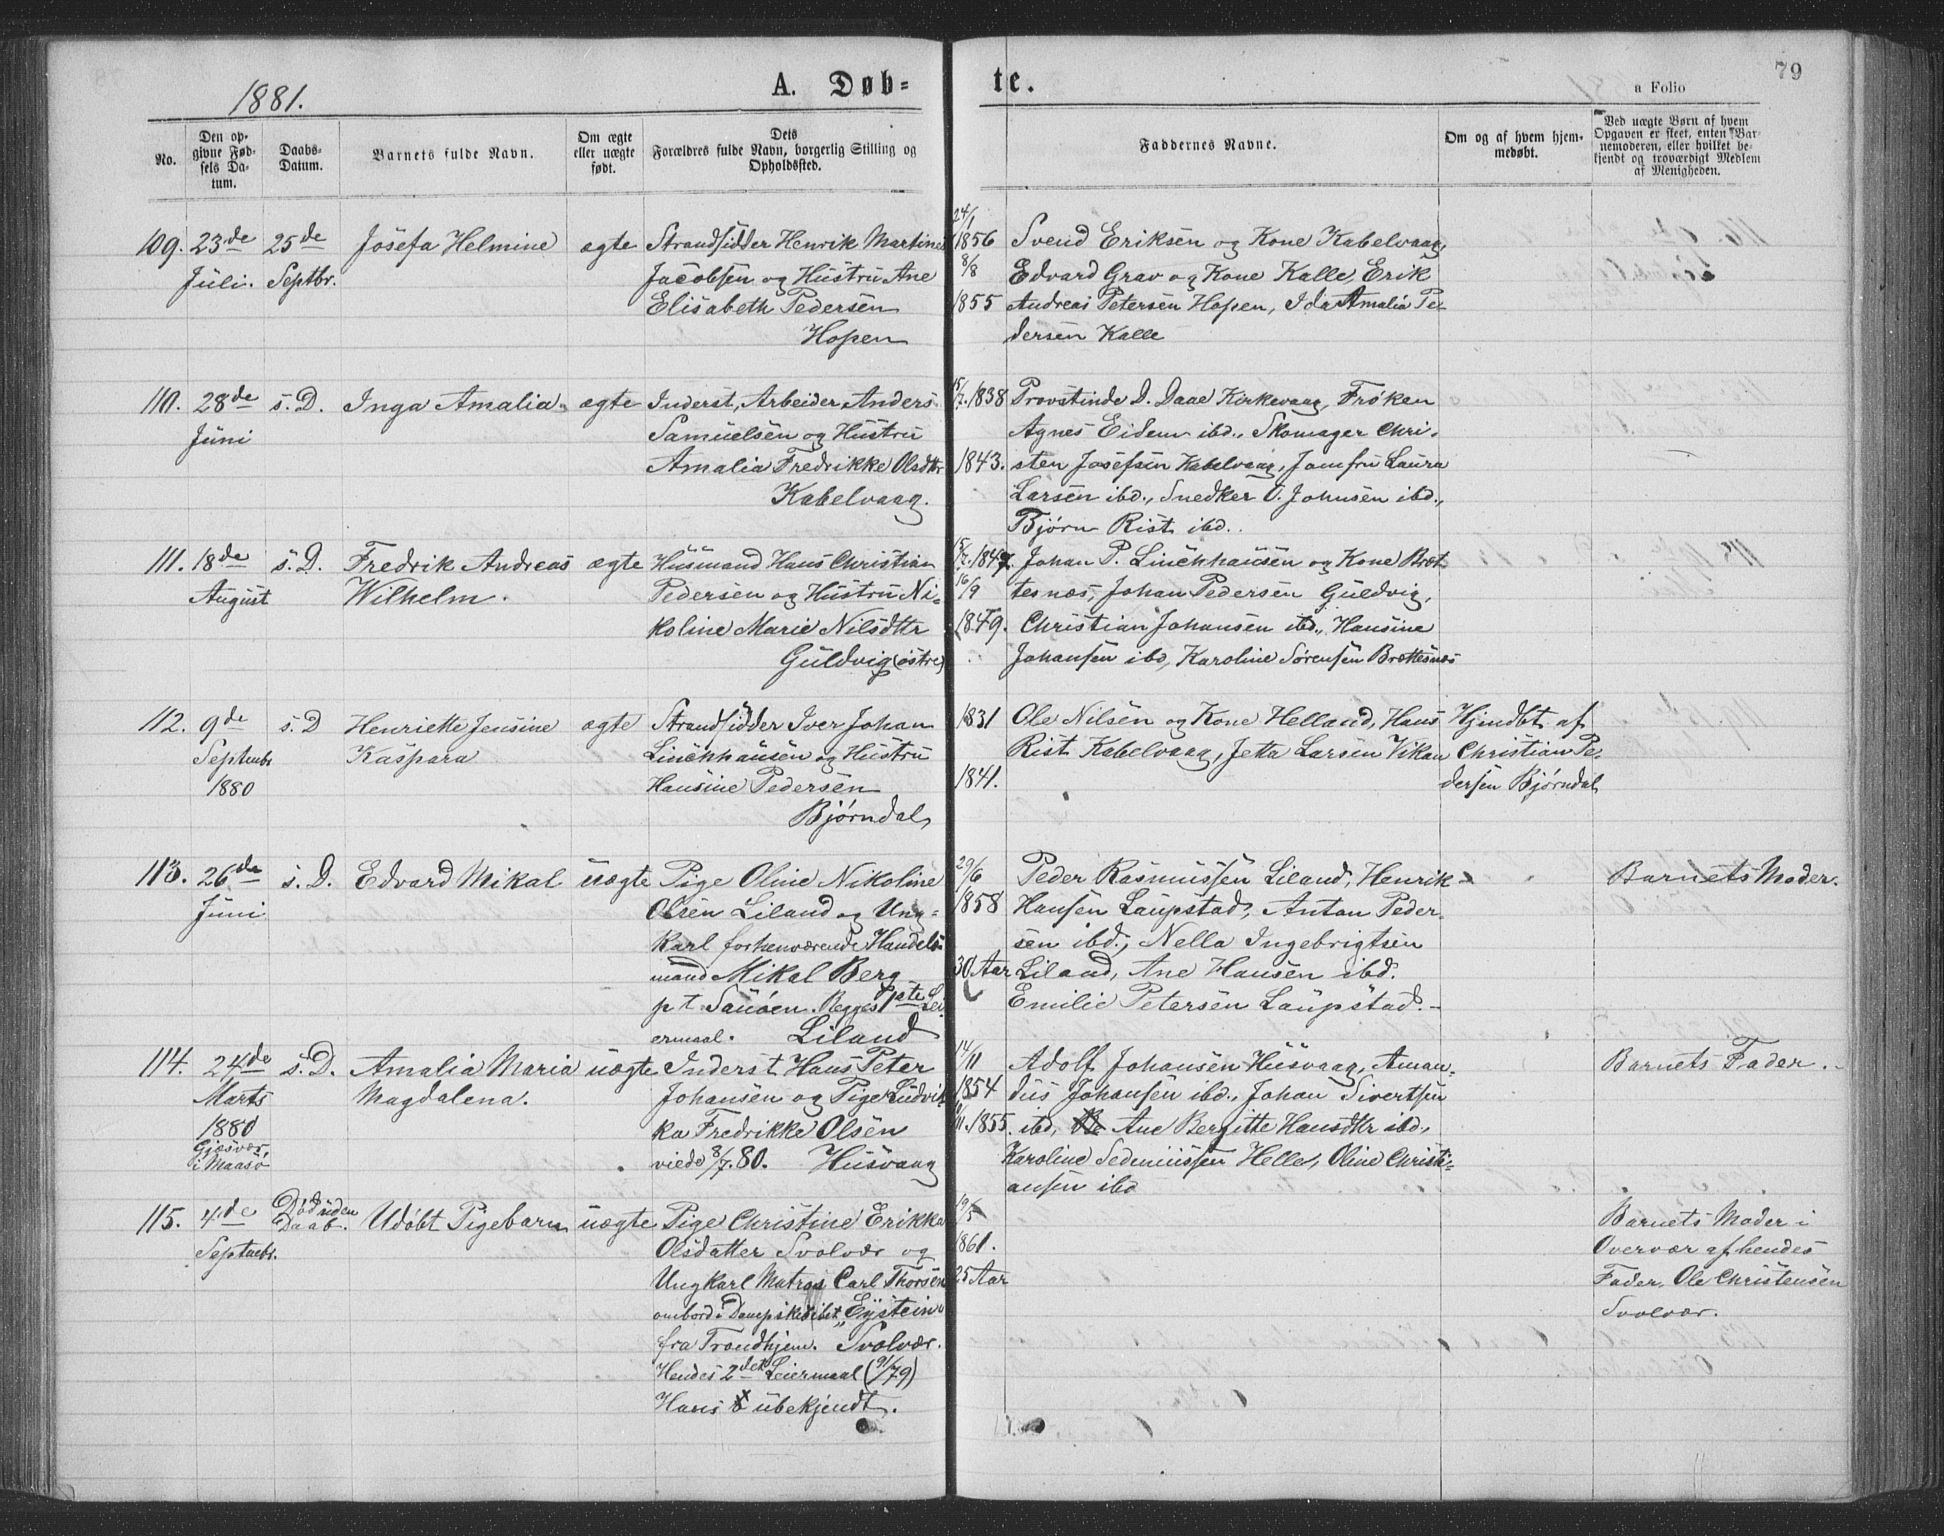 1881.
A. Døb-
te.
79
a Folio
No.
Den op-
givne Fød-
sels Da-
tum.
Daabs-
Datum.
Barnets fulde Navn.
Om ægte
eller uægte
født.
Dets
Forældres fulde Navn, borgerlig Stilling og
Opholdssted.
Faddernes Navne.
Om og af hvem hjem-
medøbt.
Ved uægte Børn af hvem
Opgaven er skeet, enten Bar-
nemoderen, eller hvilket be-
kjendt og troværdigt Medlem
af Menigheden.
109. 23de
Juli.
25de
Septbr.
Josefa Helmine
ægte
Strandsidder Henrik Martines
Jacobsen og Hustru Ane
Elisabeth Pedersen
Hopen
24/1
1856
8/8
1855
Svend Eriksen og Kone Kabelvaag,
Edvard Grav og Kone Kalle, Erik
Andreas Petersen Hopen, Ida Amalia Pe-
dersen Kalle
110. 28de
Juni
s. D.
Inga Amalia
ægte
Inderst, Arbeider Anders
Samuelsen og Hustru
Amalia Fredrikke Olsdttr
Kabelvaag.
15/7. 1838
1843.
Provstinde D. Daae Kirkevaag, Frøken
Agnes Eidem ibd., Skomager Chri-
sten Josefsen Kabelvaag, Jomfru Laura
Larsen ibd., Snedker O. Johnsen ibd.,
Bjørn Rist ibd.
111. 18de
August
s. D.
Fredrik Andreas
Wilhelm.
ægte
Husmand Hans Christian
Pedersen og Hustru Ni-
koline Marie Nilsdttr
Guldvig (østre)
15/7. 1847.
16/9
1849.
Johan P. Linckhausen og Kone Bret-
tesnæs, Johan Pedersen Guldvig,
Christian Johansen ibd., Hansine
Johansen ibd, Karoline Sørensen Brettesnæs
112. 9de
Septembr
1880
s. D
Henriette Jensine
Kaspara
ægte
Strandsidder Iver Johan
Linckhausen og Hustru
Hansine Pedersen
Bjørndal,
1831
1841.
Ole Nilsen og Kone Helland, Hans
Rist Kabelvaag, Jetta Larsen Vikan
Hjmdbt af
Christian Pe-
dersen Bjørndal
113. 26de
Juni
s. D.
Edvard Mikal
uægte
Pige Oline Nikoline
Olsen Liland og Ung-
karl forhenværende Handels-
mand Mikal Berg
p t Sauøen. Begges 1ste Lei-
ermaal. Liland
29/6
1858
30 Aar
Peder Rasmussen Liland, Henrik
Hansen Laupstad, Anton Peder-
sen ibd., Nella Ingebrigtsen
Liland, Ane Hansen ibd.
Emilie Petersen Laupstad.
Barnets Moder.
114. 24de
Marts
1880
Gjesvær
i Maasø
s. D.
Amalia Maria
Magdalena.
uægte
Inderst Hans Peter
Johansen og Pige Ludvik-
ka Fredrikke Olsen
viede 8/7. 80. Husvaag
14/11
1854
/11. 1855.
Adolf Johansen Husvaag, Aman-
dus Johansen ibd., Johan Sivertsen
ibd, Ane Bergitte Hansdttr ibd,
Karoline Sedeniussen Helle, Oline Christi-
ansen ibd
Barnets Fader.
115. 4de
Septmbr.
Død uden
Daab.
Udøbt Pigebarn
uægte
Pige Christine Erikka
Olsdatter Svolvær og
Ungkarl Matros Carl Thorsen
ombord i Dampskibet "Eystein"
fra Trondhjem. Svolvær.
Hendes 2det Leiermaal (9/1 79)
Hans ubekjendt.
19/5
1861.
25 Aar
Barnets Moder i
Overvær af hendes
Fader, Ole Christensen
Svolvær.